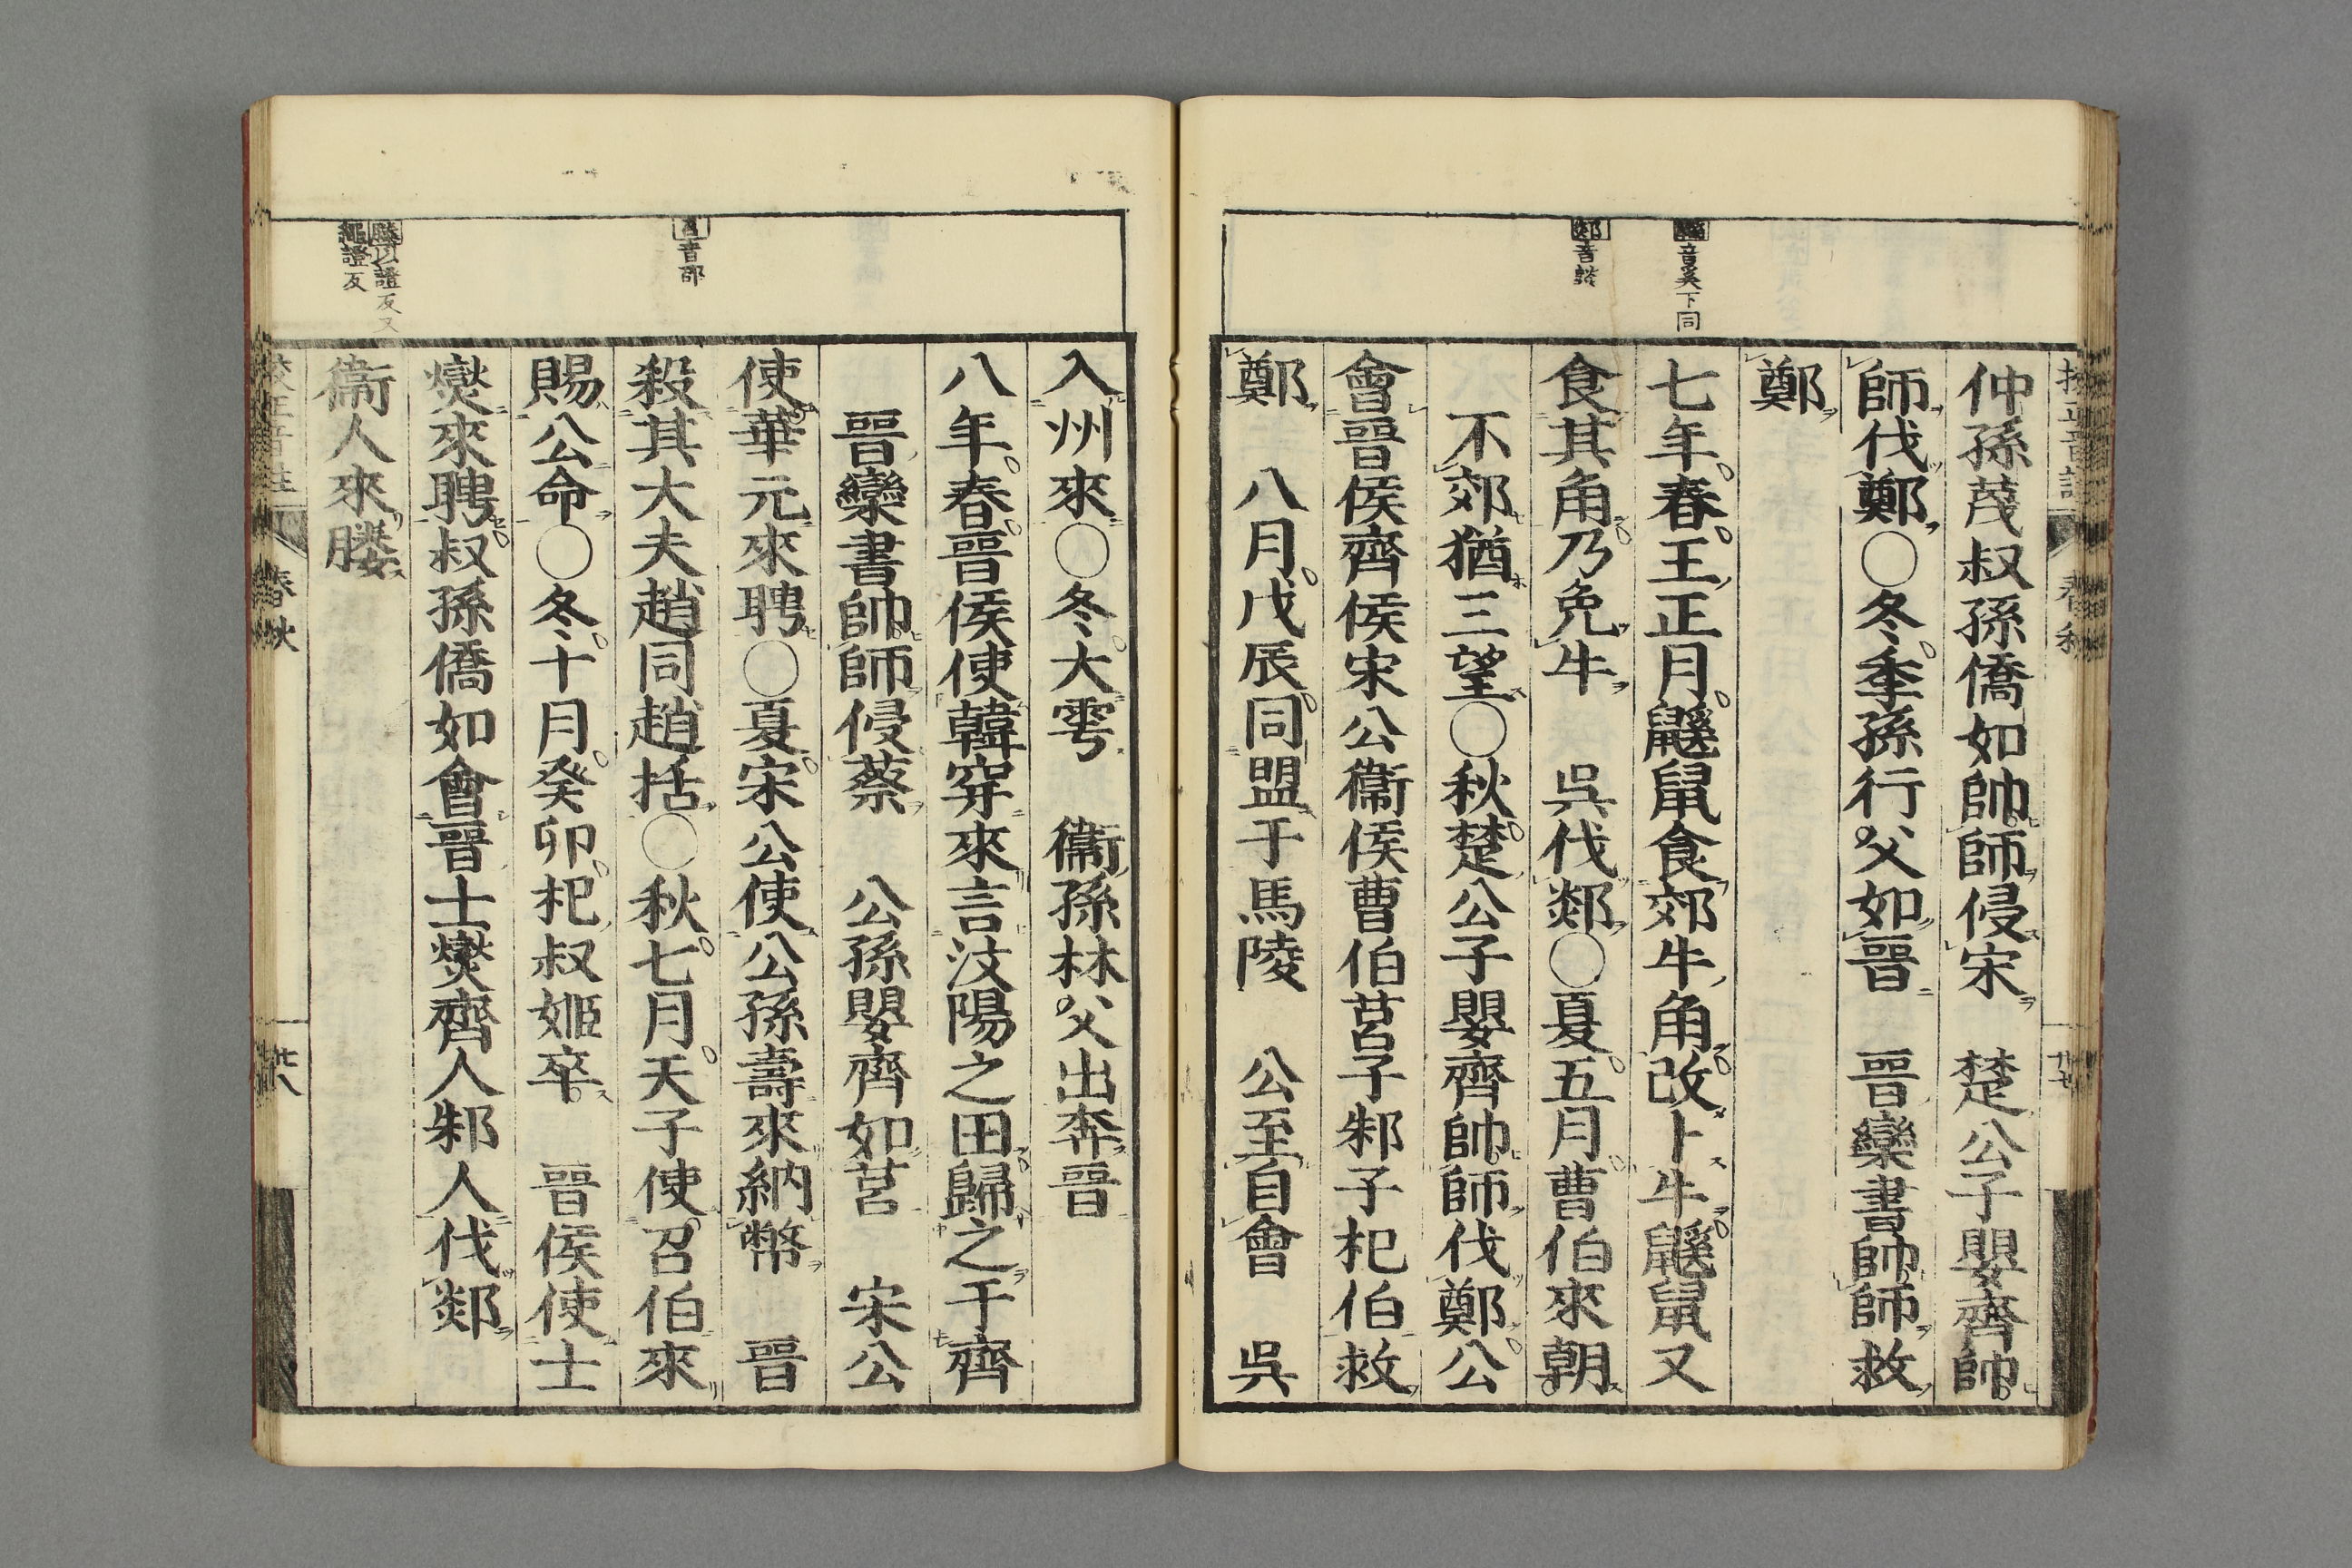 仲孫蔑叔孫僑如帥師侵宋　楚公子嬰齊帥
師伐鄭○冬季孫行父如晉　晉欒書帥師救
鄭
七年春王正月鼷鼠食郊牛角改卜牛鼷鼠又
食其角乃免牛　吳伐郯○夏五月曹伯來朝
不郊猶三望○秋楚公子嬰齊帥師伐鄭公
會晉侯齊侯宋公衞侯曹伯莒子邾子杞伯救
鄭　八月戊辰同盟于馬陵　公至自會　吳
音奚下同
郯音談
入州來○冬大雩　衞孫林父出奔晉
八年春晉侯使韓穿來言汶陽之田歸之于齊
晉欒書帥師侵蔡　公孫嬰齊如莒　宋公
使華元來聘○夏宋公使公孫壽來納幣　晉
殺其大夫趙同趙括○秋七月天子使召伯來
賜公命○冬十月癸卯杞叔姬卒　晉侯使士
燮來聘叔孫僑如會晉士燮齊人邾人伐郯
衞人來媵
召音邵
媵以證反又
繩證反
春秋
廿八